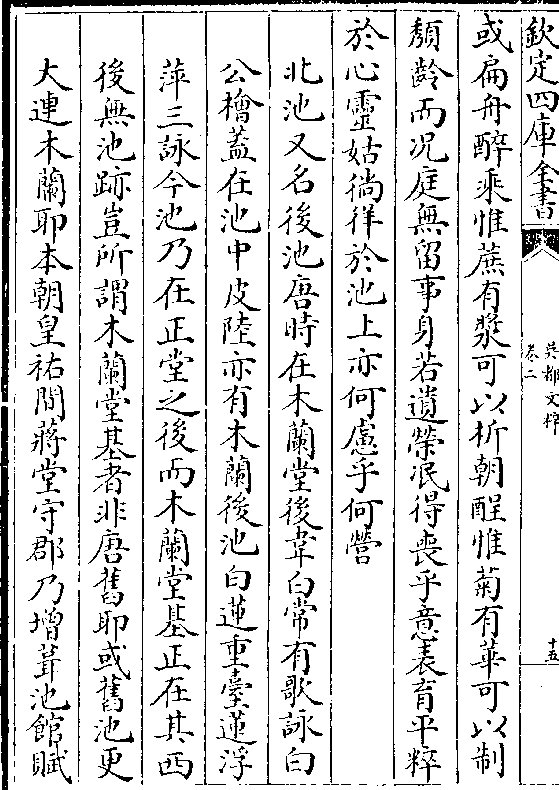 欽定四庫全書
吳都文粹
卷二
十五
或扁舟醉乘惟蔗有漿可以析朝酲惟菊有華可以制
頽齡而况庭無留事身若遺榮泯得喪乎意表育平粹
於心靈姑徜徉於池上亦何慮乎何營
北池又名後池唐時在木蘭堂後韋白常有歌詠白
公檜蓋在池中皮陸亦有木蘭後池白蓮重臺蓮浮
萍三詠今池乃在正堂之後而木蘭堂基正在其西
後無池跡豈所謂木蘭堂基者非唐舊耶或舊池更
大連木蘭耶本朝皇祐間蔣堂守郡乃增葺池館賦